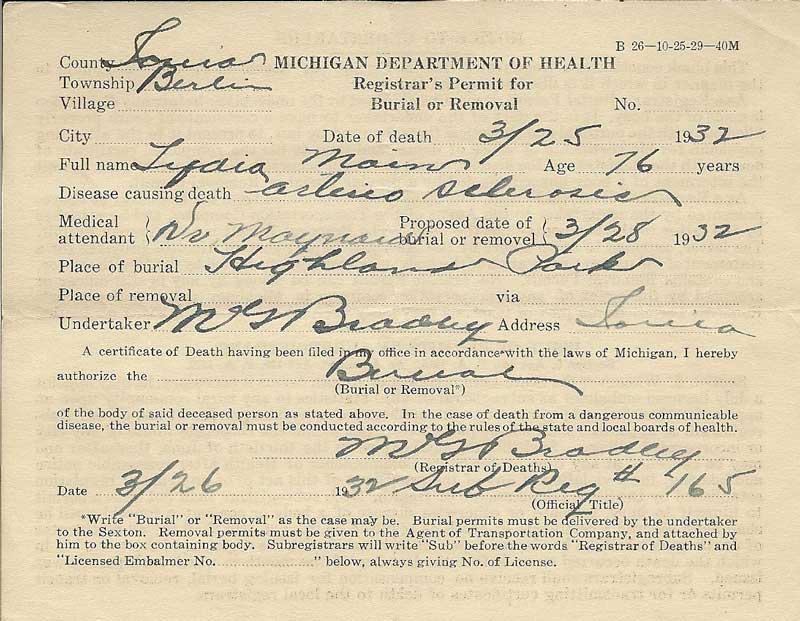 B 26—10-25-29—40M
County Ionia MICHIGAN DEPARTMENT OF HEALTH
Township Berlin Registrar's Permit for
Village Burial or Removal No.
City Date of death 3/25 1932
Full name Lydia Age 76 years
Disease causing death arterio sclerosis
Medical attendant Dr Maynard Proposed date of burial or removel 3/28 1932
Place of burial Highland Park
Place of removal via
Undertaker M G Bradley Address Ionia
A certificate of Death having been filed in my office in accordance with the laws of Michigan, I hereby
authorize the Burial
(Burial or Removal*)
of the body of said deceased person as stated above. In the case of death from a dangerous communicable
disease, the burial or removal must be conducted according to the rules of the state and local boards of health.
M G Bradley
(Registrar of Deaths)
Date 3/26 1932 Sub Reg # 165
(Official Title)
*Write "Burial" or "Removal" as the case may be. Burial permits must be delivered by the undertaker
to the Sexton. Removal permits must be given to the Agent of Transportation Company, and attached by
him to the box containing body. Subregistrars will write "Sub" before the words "Registrar of Deaths" and
"Licensed Embalmer No. " below, always giving No. of License.